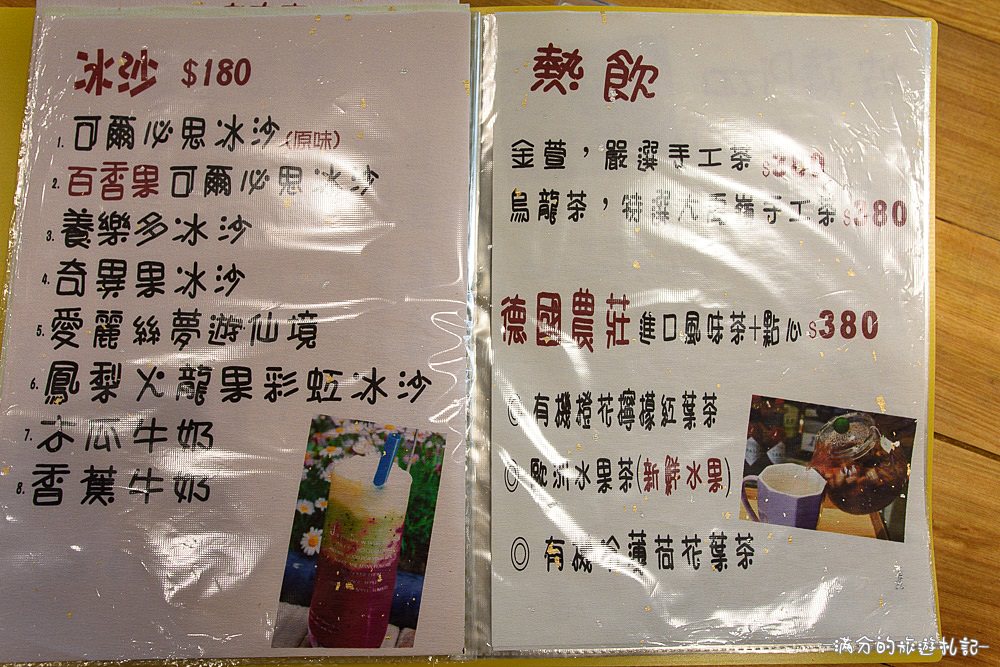 冰沙 $180
1. 可爾必思冰沙(原味)
2. 百香果可爾必思冰沙
3. 養樂多冰沙
4. 奇異果冰沙
5. 愛麗絲夢遊仙境
6. 鳳梨火龍果彩虹冰沙
7. 木瓜牛奶
8. 香蕉牛奶
熱飲
金萱，嚴選手工茶
烏龍茶，特選 手工茶 $380
德國農莊 進口風味茶+點心 $380
◎ 有機橙花檸檬紅葉茶
◎ 歐洲水果茶(新鮮水果)
◎ 有機 薄荷花葉茶
滿分的旅遊札記